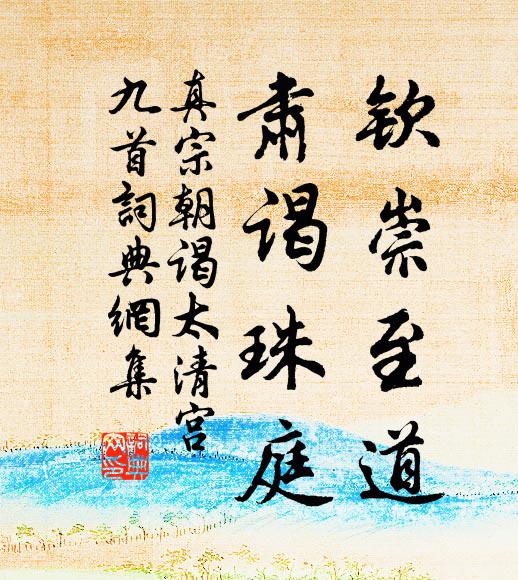 钦崇至道
肃谒珠庭
真宗朝谒太清宫
九首詞典網集